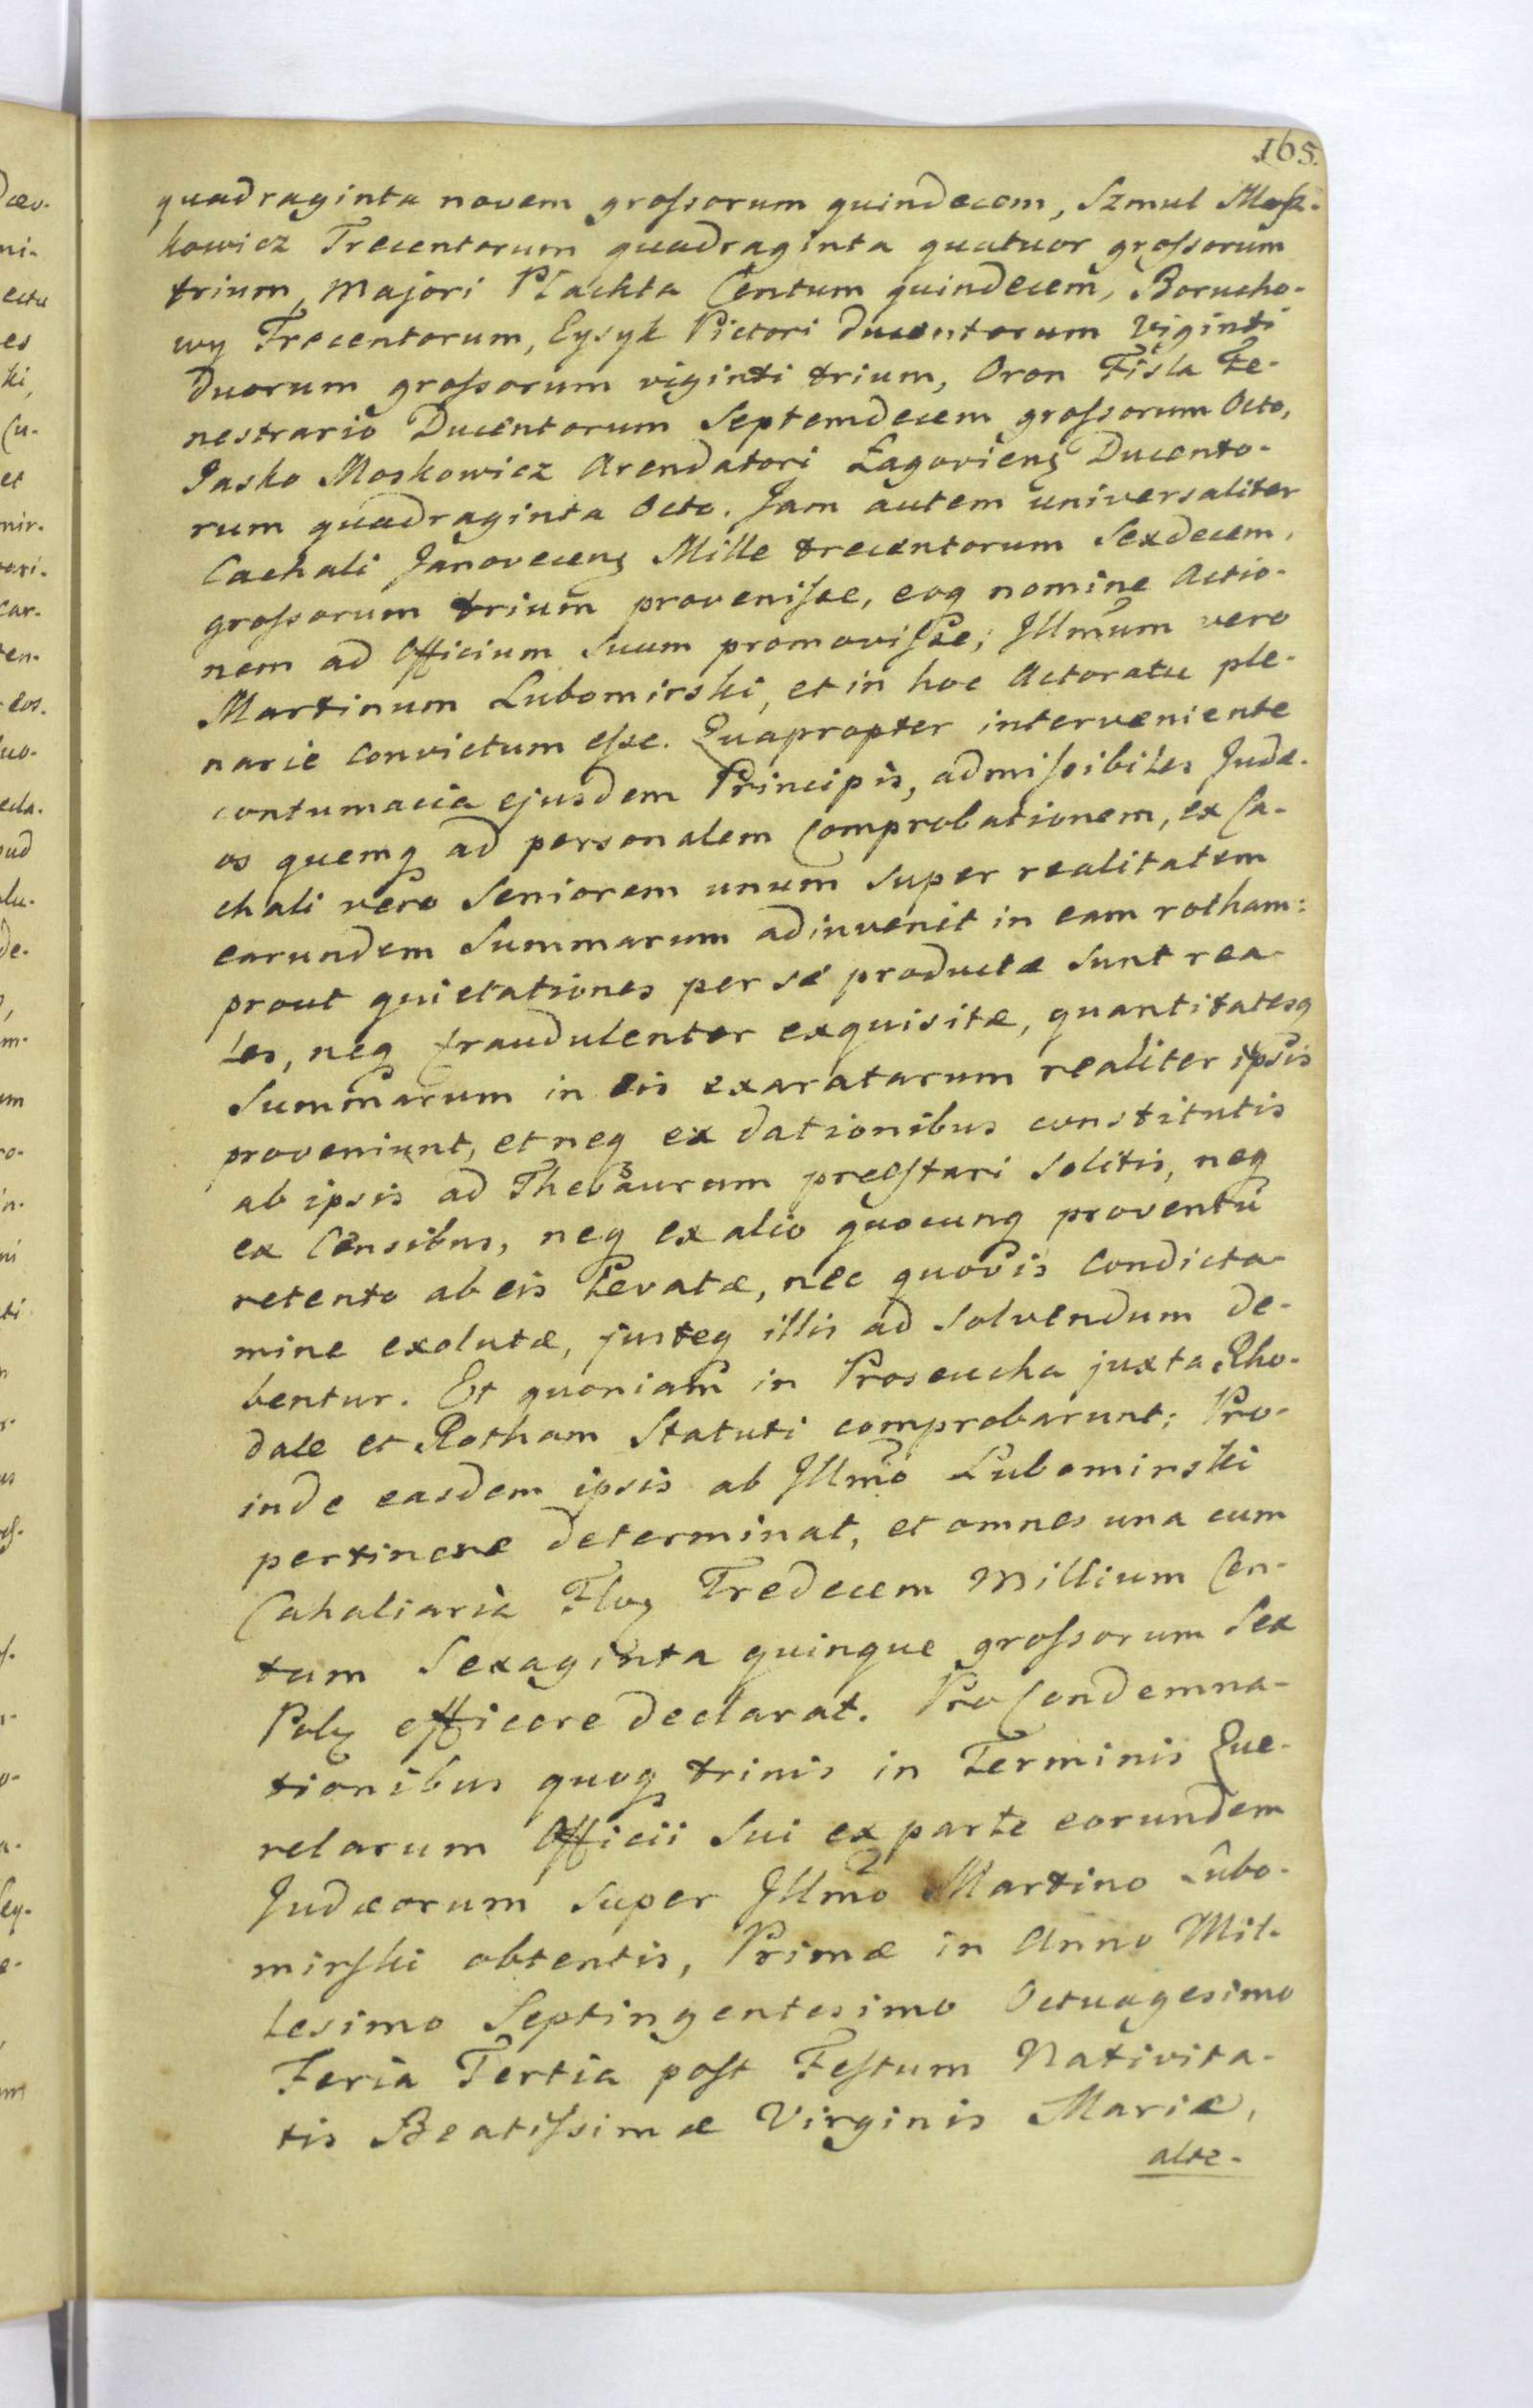 165.
quadraginta novem grossorum quindecem, Szmul Mosz-
kowicz Trecentorum quadraginta quatuor grossorum
trium, Majori Plachta Centum quindecem, Borucho-
wy Trecentorum, Eysyk Pictori ducentorum Viginti
duorum grossorum viginti trium, Oron Fisla Fe-
nestrario Ducentorum Septemdecem grossorum Octo,
Jasko Moskowicz Arendatori Łagovieng Ducento-
rum quadraginta Octo. Jam autem universaliter
Cachali Janoveceng Mille trecentorum Sexdecem,
grossorum trium provenisse, eoq nomine Actio-
nem ad Officium Suum promovisse; Illmum vero
Martinum Lubomirski, et in hoc Actoratu ple-
narie convictum esse. Quapropter interveniente
contumacia ejusdem Principis, admissibiles Judæ-
os quemq ad personalem Comprobationem, ex Ca-
chali vero Seniorem unum super realitatem
earundem Summarum adinvenit in eam rotham:
prout quietationes per se productæ sunt rea-
les, neq fraudulenter exquisitæ, quantitatesq
Summarum in eis exaratarum realiter ipsis
proveniunt, et neq ex dationibus constitutis
ab ipsis ad Thesaurum præstari solitis, neq
ex Censibus, neq ex alio quocunq proventu
retento ab eis levatæ, nec quovis condicta-
mine exolutæ, justeq illis ad solvendum de-
bentur. Et quoniam in Proseucha juxta Rho-
dale et Rotham Statuti comprobarunt; Pro-
inde easdem ipsis ab Illmo Lubomirski
pertinere determinat, et omnes una cum
Cahaliaria Flog Tredecem Millium Cen-
tum Sexaginta quinque grossorum Sex
Polz efficere declarat. Pro Condemna-
tionibus quoq trinis in Terminis Que-
relarum Officii Sui ex parte eorundem
Judæorum super Illmo Martino Lubo-
mirski obtentis, Primæ in Anno Mil-
lesimo Septingentesimo Octuagesimo
Feria Tertia post Festum Nativita-
tis Beatissimæ Virginis Mariæ,
alte-